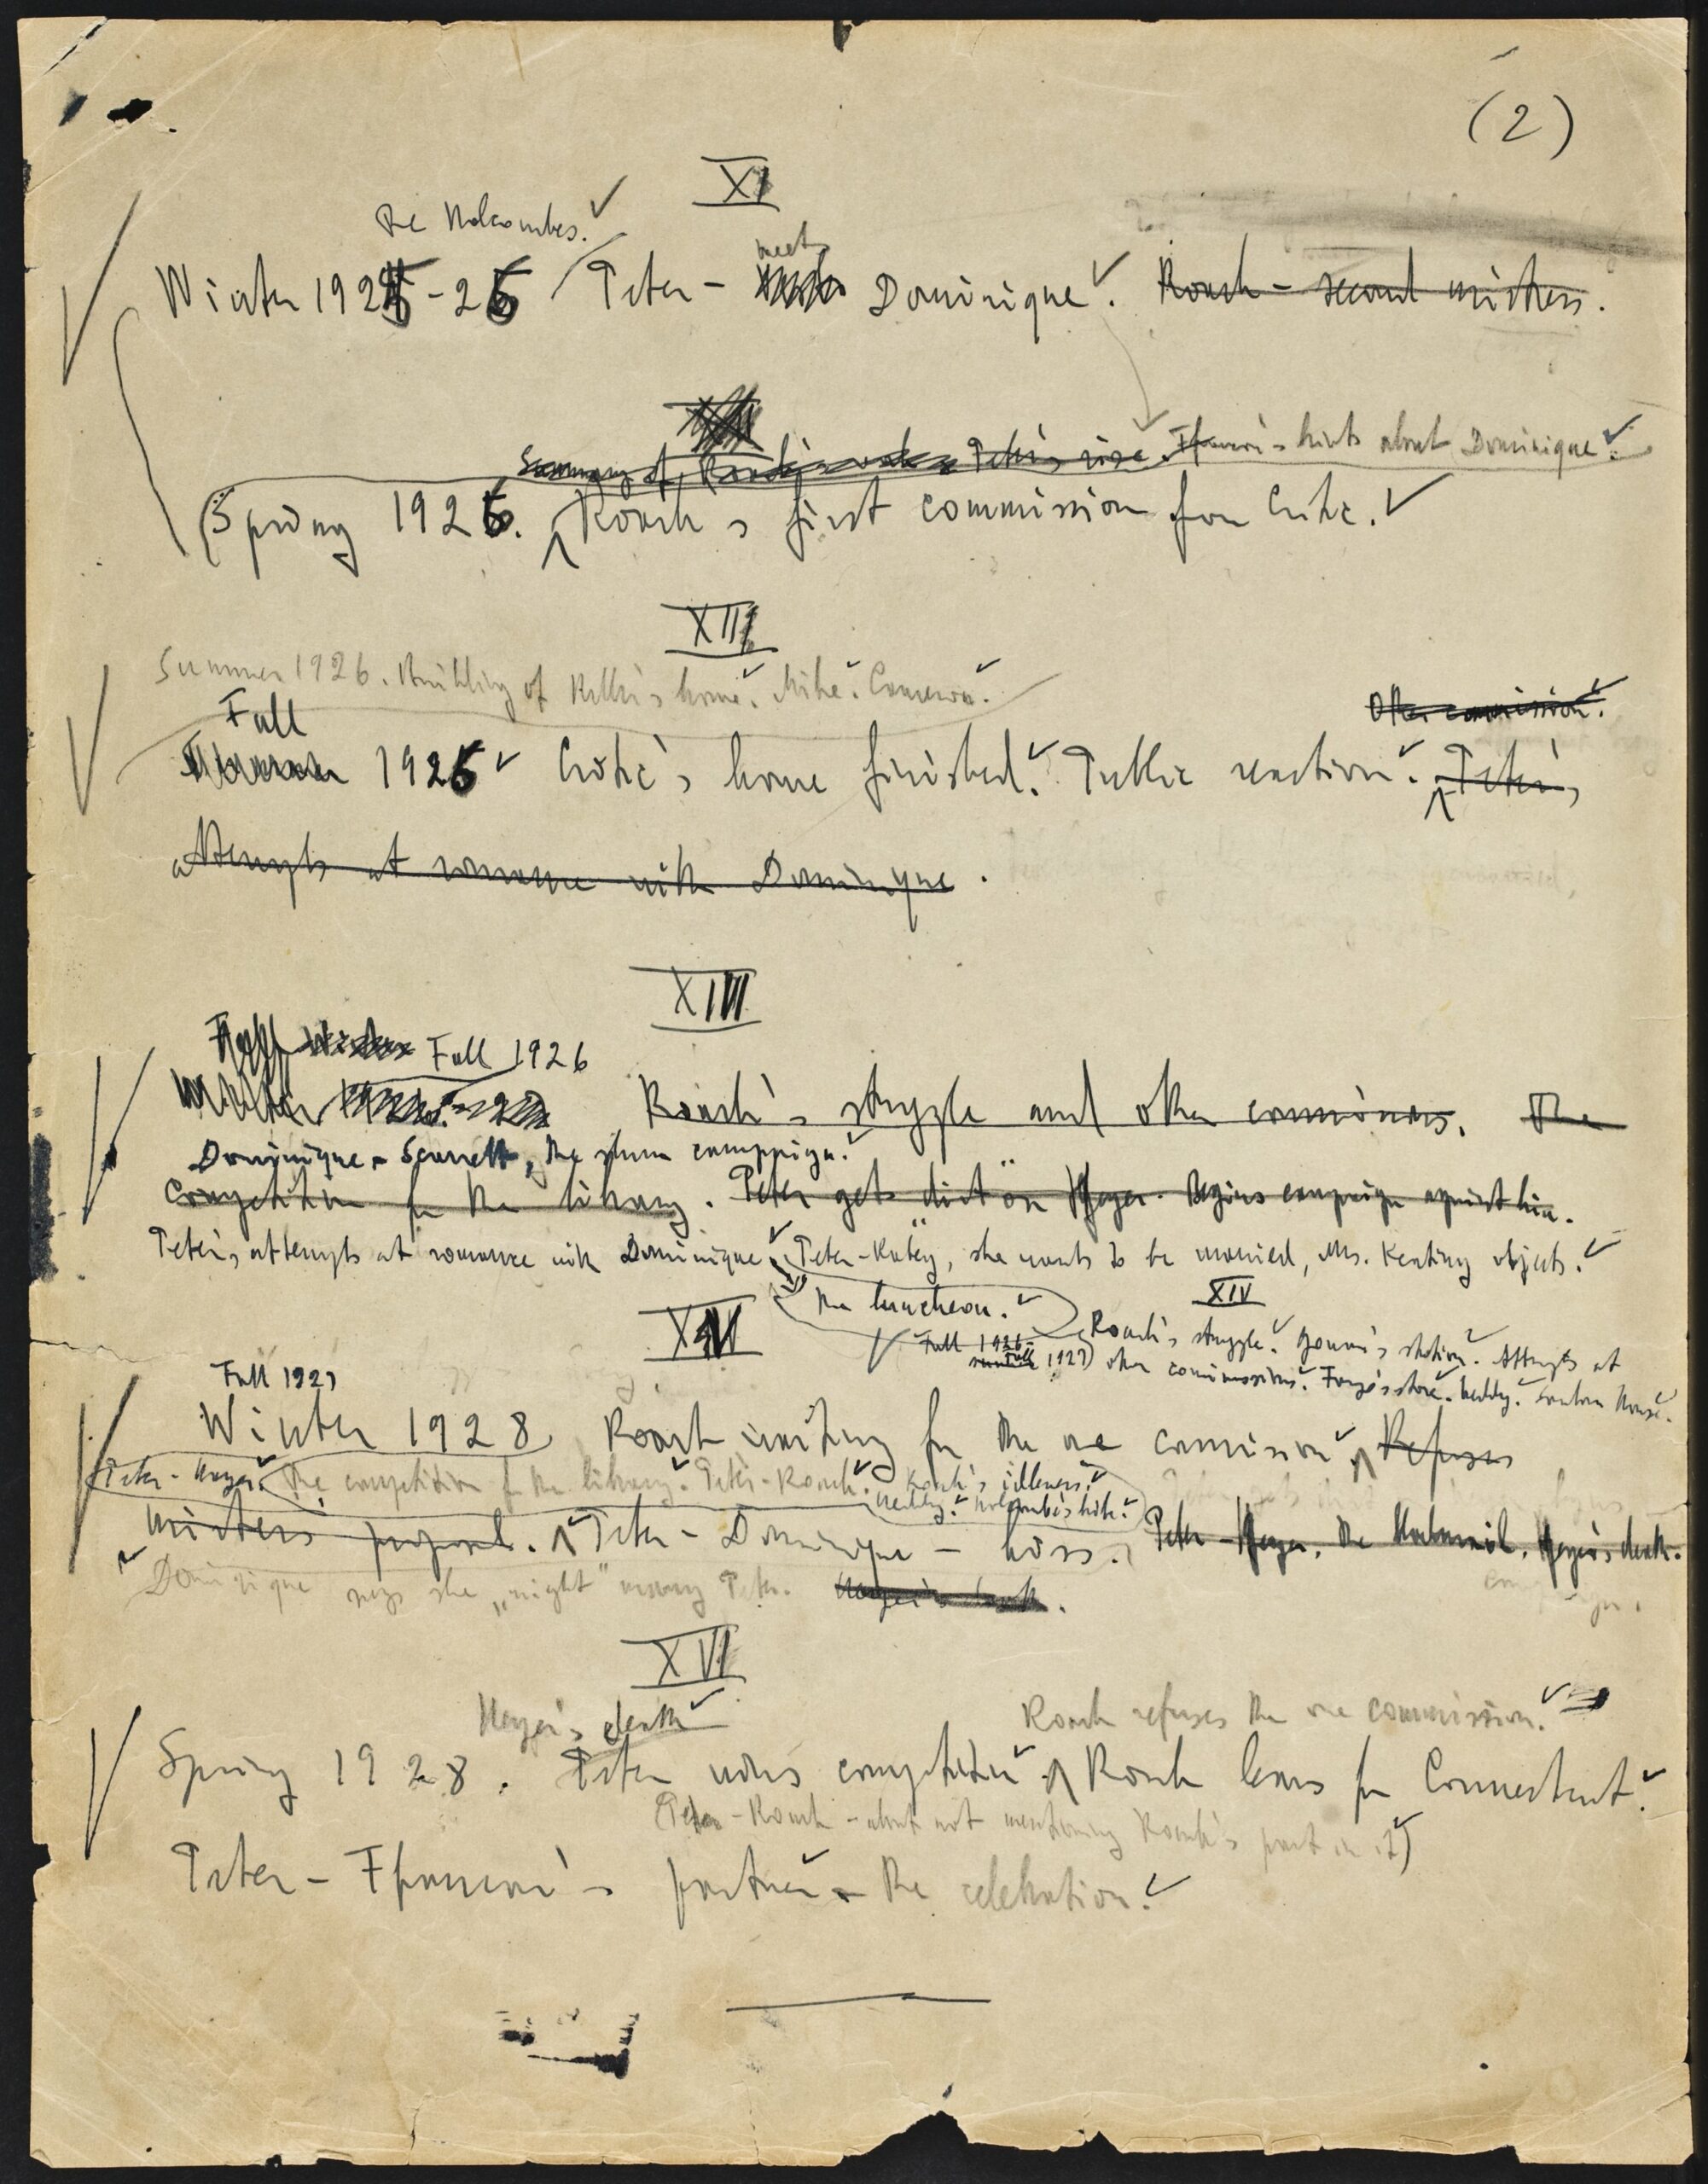 (2)
XI
The Holcombes. ✓
meets
Winter 1925-26 Peter - Dominique ✓. Roark - second mistress.
Summary of Roark's Peter's rise. Francon's hints about Dominique. ✓
Spring 1926. Roark's first commission for critic. ✓
XII
Summer 1926. Building of home ✓. Mike ✓. Cameron ✓.
Fall
Other commission. ✓
1926 ✓ Critic's home finished. ✓ Public reaction ✓. Peter's
attempts at romance with Dominique.
XIII
Fall 1926
Winter Roark's struggle and other commissions. The
Dominique - Scarrett, the slum campaign. ✓
competition for the library. Peter gets "dirt" on Heyer. Begins campaign against him.
Peter's attempts at romance with Dominique ✓. Peter-Katey, she wants to be married, Mrs. Keating objects. ✓
The luncheon. ✓
XIV
XV
Fall 1926 - Fall 1927) Roark's struggle ✓. Gowan's station ✓. Attempts at
other commissions ✓. Fargo's store. Weddy ✓. Sanborn House ✓.
Fall 1927
Winter 1928 Roark waiting for the one commission ✓. Refuses
Peter - Heyer ✓. The competition for the library ✓. Peter-Roark ✓. Roark's illness ✓.
Weddy ✓. Holcombe's hate ✓.
mister's proposal. Peter - Dominique - kiss. Peter - Heyer, the blackmail, Heyer's death.
✓ Dominique says she „might" marry Peter. Heyer's death.
XVI
Heyer's death ✓
Roark refuses the one commission. ✓
Spring 1928. Peter wins competition ✓. Roark leaves for Connecticut. ✓
(Peter-Roark - about not mentioning Roark's part in it)
Peter - Francon's partner ✓ - the celebration. ✓